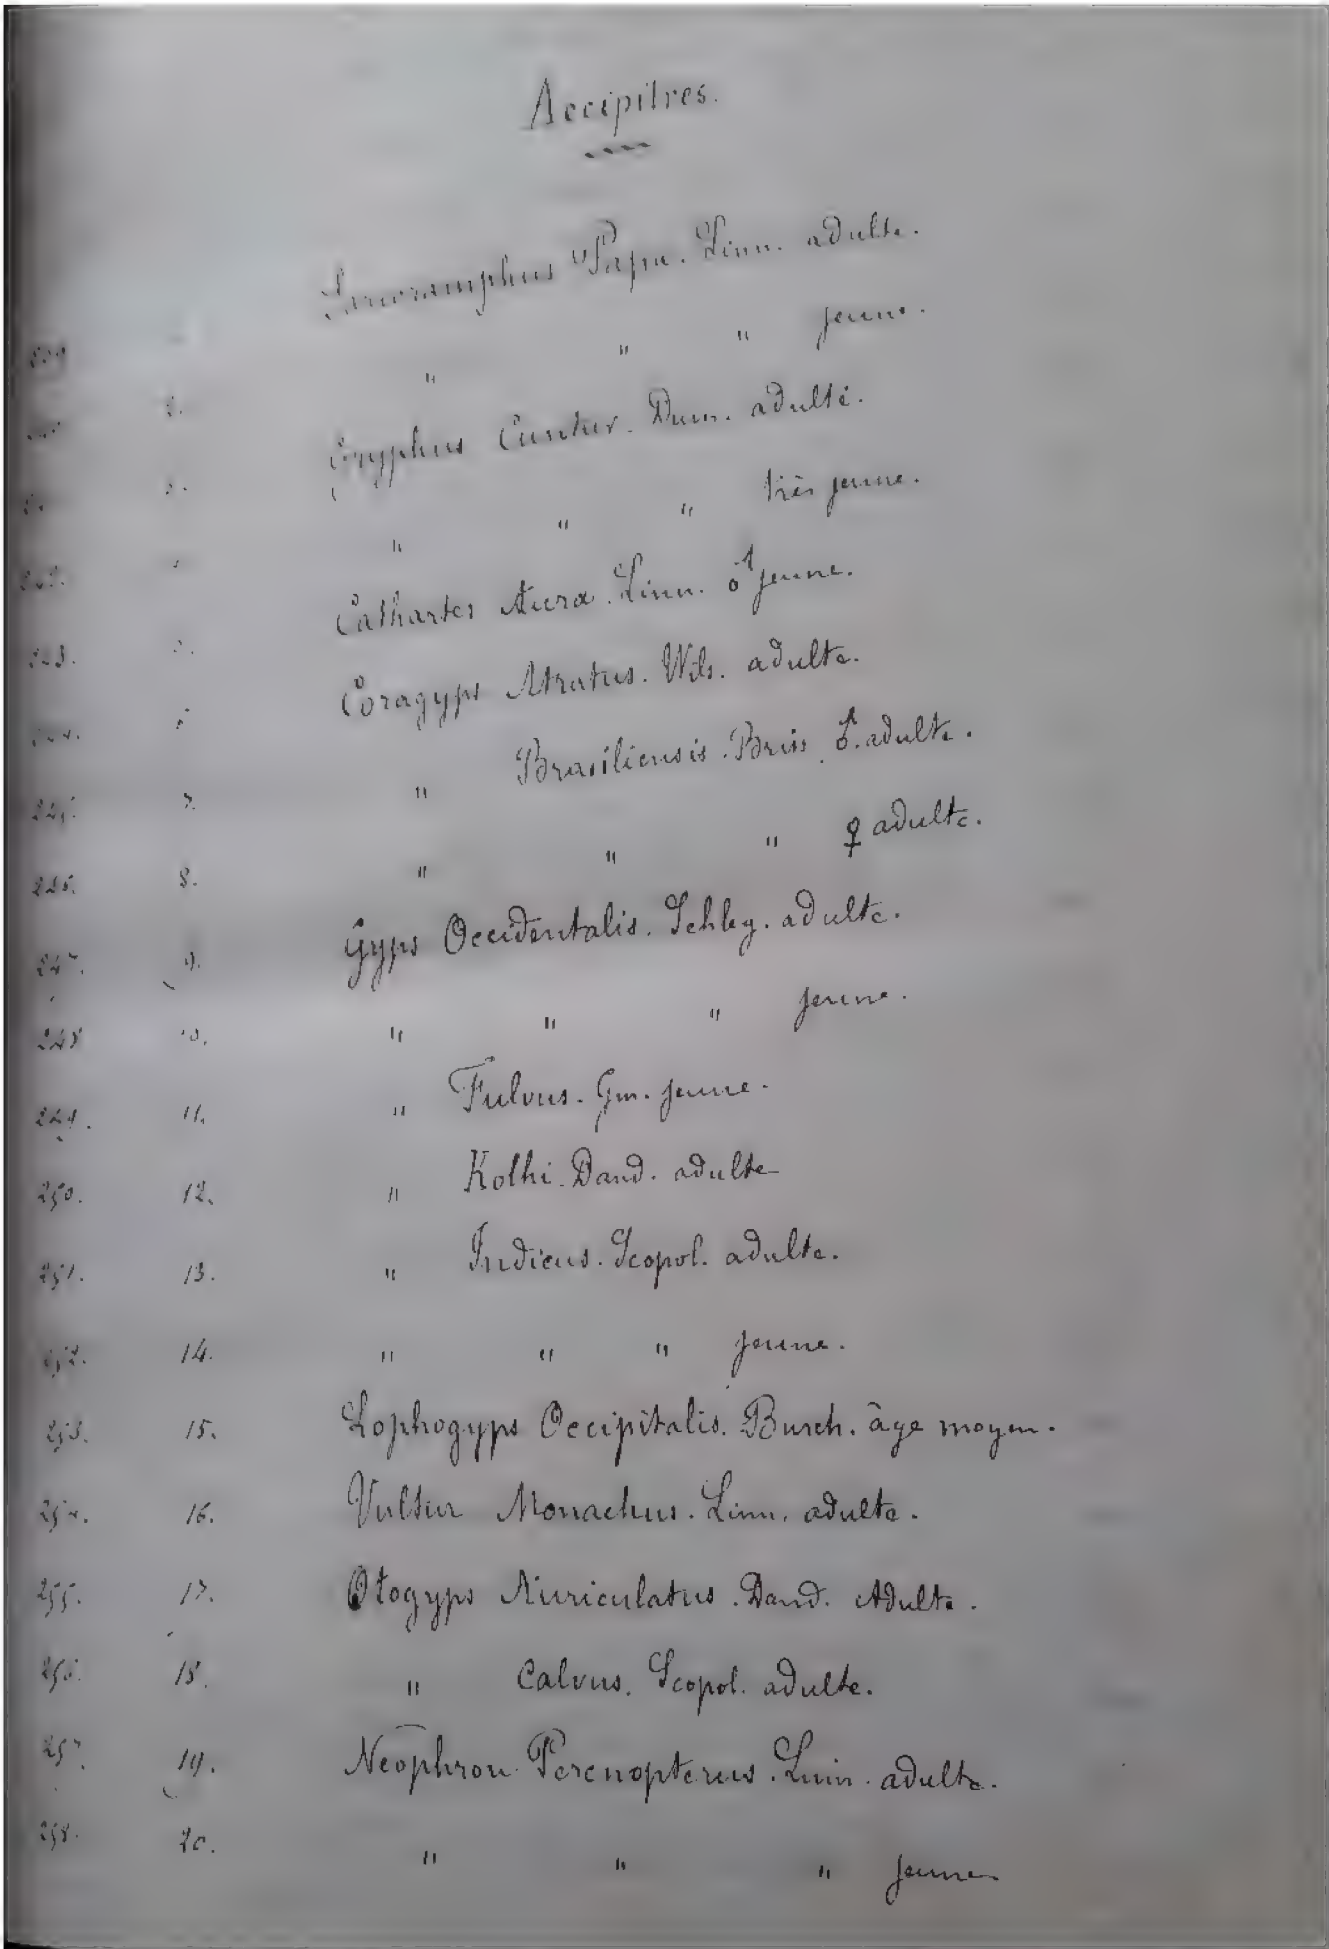 Accipitres.
Sarcoramphus Papa. Linn. adulte.
2. " " " jeune.
Gryphus Cuntur. Dum. adulte.
242. " " " très jeune.
243. Cathartes Aura. Linn. ♂ jeune.
Coragyps Atratus. Wils. adulte.
245. 7. " Brasiliensis. Briss. ♂. adulte.
246. 8. " " " ♀ adulte.
247. 9. Gyps Occidentalis. Schleg. adulte.
248 10. " " " jeune.
249. 11. " Fulvus. Gm. jeune.
250. 12. " Kolbi. Daud. adulte
251. 13. " Indicus. Scopol. adulte.
252. 14. " " " jeune.
253. 15. Lophogyps Occipitalis. Burch. âge moyen.
254. 16. Vultur Monachus. Linn. adulte.
255. 17. Otogyps Auriculatus. Daud. Adulte.
256. 18. " Calvus. Scopol. adulte.
257. 19. Neophron Percnopterus. Linn. adulte.
258. 20. " " " jeune